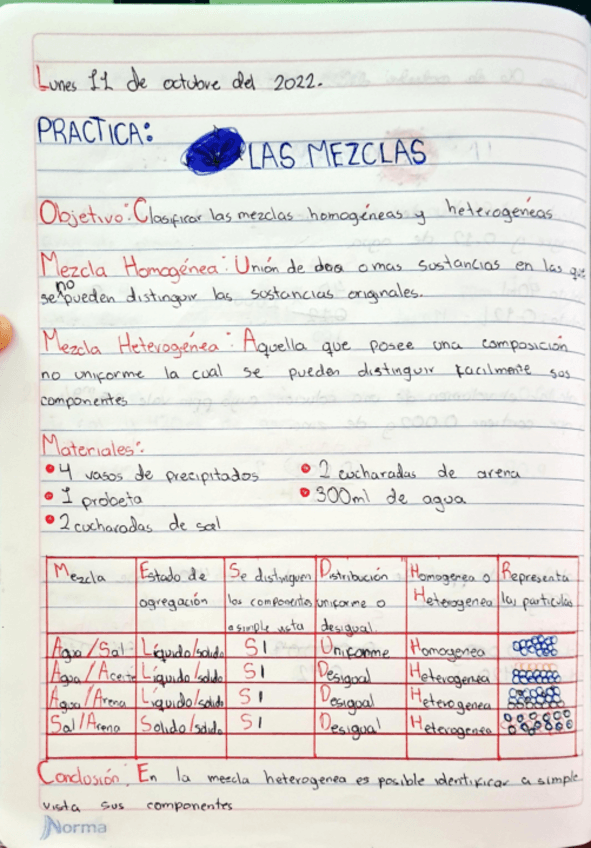 Lunes 11 de octubre del 2022.
PRACTICA:
LAS MEZCLAS
Objetivo: Clasificar las mezclas homogéneas y heterogéneas
Mezcla Homogénea: Unión de dos o mas sustancias en las que
se no pueden distinguir las sustancias originales.
Mezcla Heterogénea: Aquella que posee una composición
no uniforme la cual se pueden distinguir facilmente sus
componentes
Materiales:
• 4 vasos de precipitados • 2 cucharadas de arena
• 1 probeta • 300ml de agua
• 2 cucharadas de sal
Mezcla Estado de Se distinguen Distribución Homogenea o Representa
agregación los componentes uniforme o Heterogenea las particulas
a simple vista desigual
Agua/Sal Líquido/solido SI Uniforme Homogenea
Agua/Aceite Líquido/solido SI Desigual Heterogenea
Agua/Arena Líquido/solido SI Desigual Heterogenea
Sal/Arena Solido/solido SI Desigual Heterogenea
Conclusión: En la mezcla heterogenea es posible identificar a simple
vista sus componentes
Norma